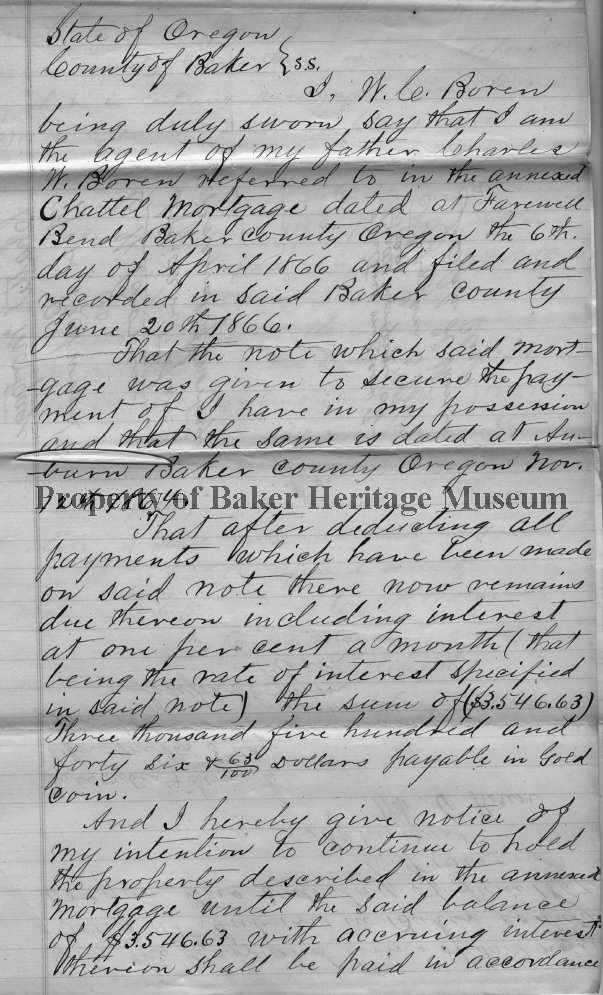 State of Oregon
County of Baker } s.s.
I, W. C. Boren
being duly sworn say that I am
the agent of my father Charles
W. Boren referred to in the annexed
Chattel Mortgage dated at Farewell
Bend Baker county Oregon the 6th.
day of April 1866 and filed and
recorded in said Baker county
June 20th 1866.
That the note which said mort-
-gage was given to secure the pay-
ment of I have in my possession
and that the same is dated at Au-
-burn Baker county Oregon Nov.
Property of Baker Heritage Museum
That after deducting all
payments which have been made
on said note there now remains
due thereon including interest
at one per cent a month (that
being the rate of interest specified
in said note) the sum of ($3.546.63)
Three thousand five hundred and
forty six & 63/100 Dollars payable in Gold
coin.
And I hereby give notice of
my intention to continue to hold
the property described in the annexed
mortgage until the said balance
of $3.546.63 with accruing interest
thereon shall be paid in accordance